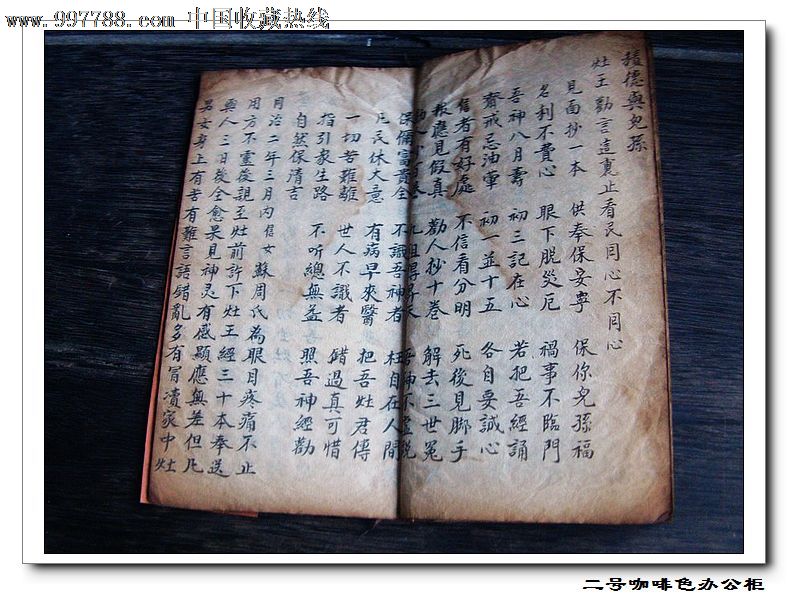 www.997788.com 中国收藏热线
積德與兒孫
灶王勸言這裏止看民同心不同心
見面抄一本 供奉保安寧 保你兒孫福
名利不費心 眼下脱災厄 禍事不臨門
吾神八月壽 初三記在心 若把吾經誦
齋戒忌油葷 初一並十五 各自要誠心
信者有好處 不信看分明 死後見脚手
報應見假真 勸人抄十卷 解去三世冤
保佃富貴全 不識吾神者 枉自在人間
凡民休大意 有病早來醫 把吾灶君傳
一切苦難離 世人不識者 錯過真可惜
指引家生路 不听總無益 照吾神經勸
自然保清吉
同治二年三月内信女蘇周氏為眼目疼痛不止
用方不靈後親至灶前許下灶王經三十本奉送
與人三日後全愈果見神灵有感顯應無差但凡
男女身上有苦有難言語錯亂多有冒瀆家中灶
二号咖啡色办公柜